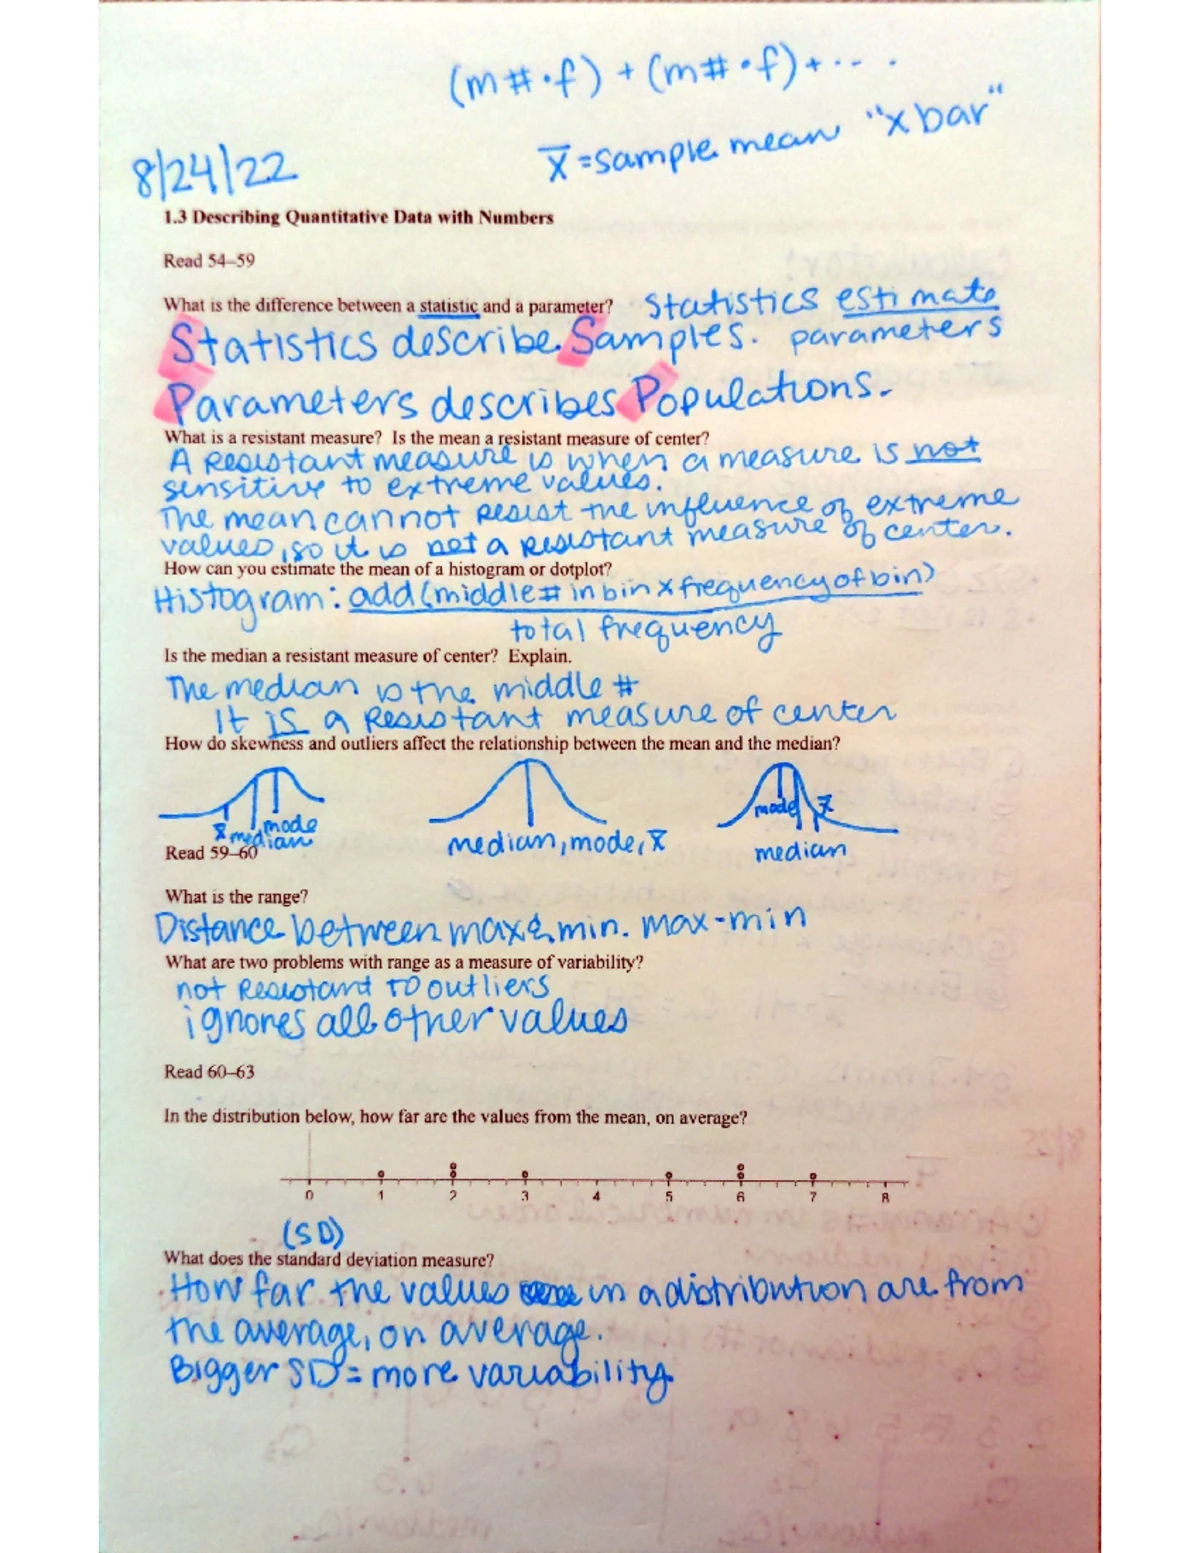 (m#·f) + (m#·f) + ....
x̄ = sample mean "x bar"
8/24/22
1.3 Describing Quantitative Data with Numbers
Read 54–59
What is the difference between a statistic and a parameter? Statistics estimate
Statistics describe Samples. parameters
Parameters describes Populations.
What is a resistant measure? Is the mean a resistant measure of center?
A Resistant measure is when a measure is not
sensitive to extreme values.
The mean cannot resist the influence of extreme
values, so it is not a resistant measure of center.
How can you estimate the mean of a histogram or dotplot?
Histogram: add (middle # in bin x frequency of bin)
total frequency
Is the median a resistant measure of center? Explain.
The median is the middle #
It IS a Resistant measure of center
How do skewness and outliers affect the relationship between the mean and the median?
x̄ median mode
median, mode, x̄
mode x̄
median
Read 59–60
What is the range?
Distance between max & min. max-min
What are two problems with range as a measure of variability?
not Resistant to outliers
ignores all other values
Read 60–63
In the distribution below, how far are the values from the mean, on average?
0 1 2 3 4 5 6 7 8
(SD)
What does the standard deviation measure?
How far the values in a distribution are from
the average, on average.
Bigger SD = more variability